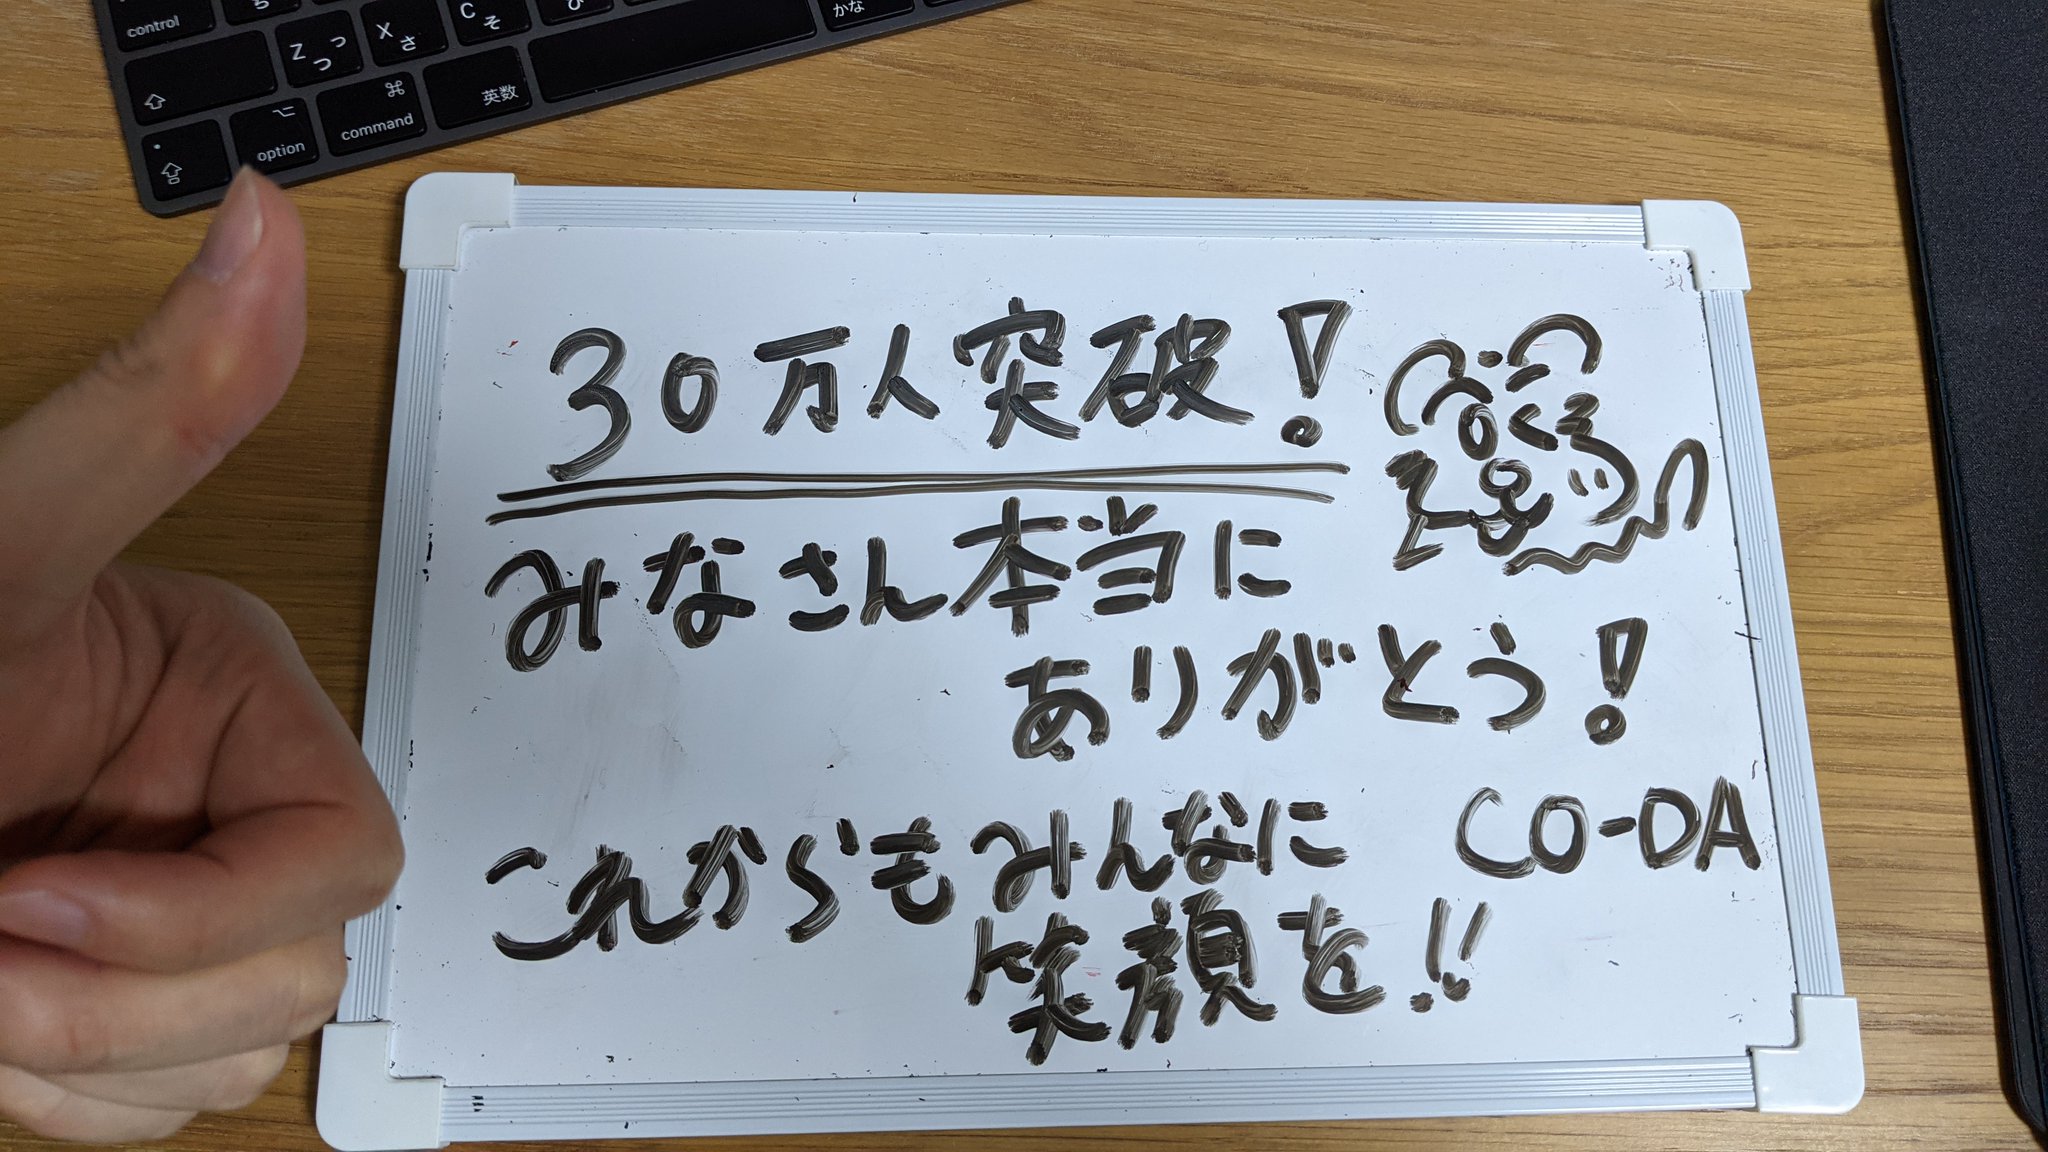 control
Z つ っ
X さ
C そ
ひ
かな
option
command
英数
30万人突破!
みなさん本当に
ありがとう!
これからもみんなに
笑顔を!!
CO-DA